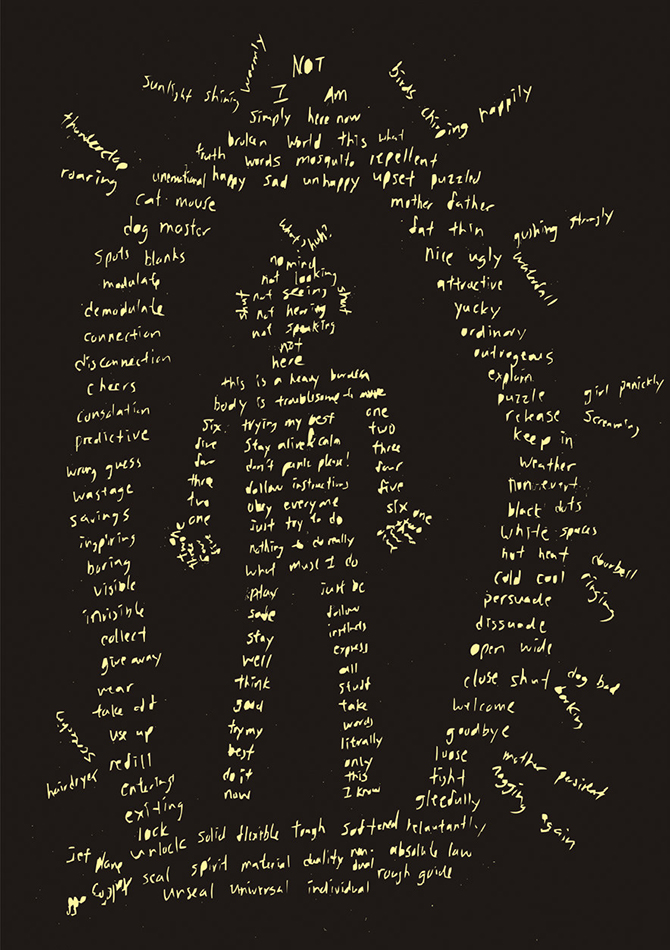 NOT
I Am
simply here now
broken world this what
truth words mosquito repellent
unemotional happy sad unhappy upset puzzled
sunlight shining warmly
birds chirping happily
thunderclap roaring
cat mouse
dog master
spots blanks
modulate
demodulate
connection
disconnection
cheers
consolation
predictive
wrong guess
wastage
savings
inspiring
boring
visible
invisible
collect
give away
wear
take off
use up
refill
entering
exiting
lock
unlock solid flexible tough softened reluctantly
seal spirit material duality non-dual absolute law
unseal universal individual rough guide
mother father
fat thin
nice ugly
attractive
yucky
ordinary
outrageous
explain
puzzle
release
keep in
weather
non-event
black dots
white spaces
hot heat
cold cool
persuade
dissuade
open wide
close shut
welcome
goodbye
loose
tight
gleefully
gushing strongly waterfall
girl panickly screaming
doorbell ringing
dog bad barking
mother persistent nagging again
hairdryer
jet plane
off
what? huh?
no mind
not looking
not seeing
shut not hearing shut
not speaking
not
here
this is a heavy burden
body is troublesome to
trying my best
stay alive & calm
don't panic please!
follow instructions
obey everyone
just try to do
nothing to do really
what must I do
six
five
four
three
two
one
one
two
three
four
five
six
one
play
safe
stay
well
think
good
try my
best
do it
now
just be
follow
instincts
express
all
stuff
take
words
litrally
only
this
I know